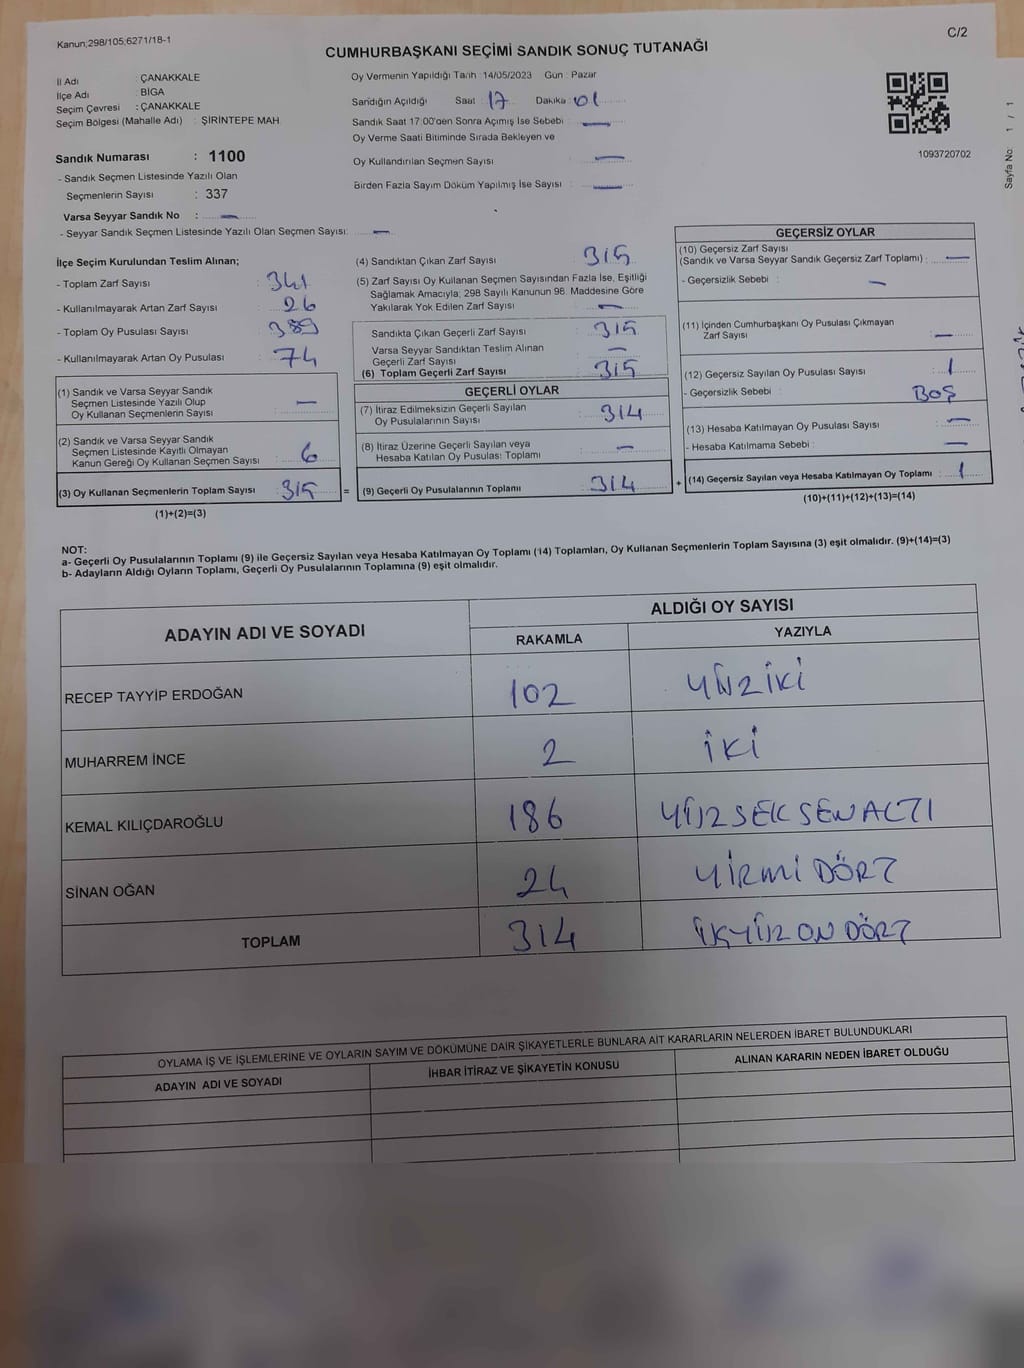 Kanun;298/105;6271/18-1
C/2
CUMHURBAŞKANI SEÇİMİ SANDIK SONUÇ TUTANAĞI
İl Adı : ÇANAKKALE
İlçe Adı : BİGA
Seçim Çevresi : ÇANAKKALE
Seçim Bölgesi (Mahalle Adı) : ŞİRİNTEPE MAH.
Oy Vermenin Yapıldığı Tarih : 14/05/2023 Gün : Pazar
Sandığın Açıldığı Saat : 17 Dakika : 01
Sandık Saat 17:00'den Sonra Açımış İse Sebebi : —
Oy Verme Saati Bitiminde Sırada Bekleyen ve
Oy Kullandırılan Seçmen Sayısı : —
Birden Fazla Sayım Döküm Yapılmış İse Sayısı : —
1093720702
Sayfa No: 1 / 1
Sandık Numarası : 1100
- Sandık Seçmen Listesinde Yazılı Olan
Seçmenlerin Sayısı : 337
Varsa Seyyar Sandık No : —
- Seyyar Sandık Seçmen Listesinde Yazılı Olan Seçmen Sayısı: —
İlçe Seçim Kurulundan Teslim Alınan;
- Toplam Zarf Sayısı : 341
- Kullanılmayarak Artan Zarf Sayısı : 26
- Toplam Oy Pusulası Sayısı : 389
- Kullanılmayarak Artan Oy Pusulası : 74
(1) Sandık ve Varsa Seyyar Sandık
Seçmen Listesinde Yazılı Olup
Oy Kullanan Seçmenlerin Sayısı : —
(2) Sandık ve Varsa Seyyar Sandık
Seçmen Listesinde Kayıtlı Olmayan
Kanun Gereği Oy Kullanan Seçmen Sayısı : 6
(3) Oy Kullanan Seçmenlerin Toplam Sayısı : 315 =
(1)+(2)=(3)
(4) Sandıktan Çıkan Zarf Sayısı : 315
(5) Zarf Sayısı Oy Kullanan Seçmen Sayısından Fazla İse, Eşitliği
Sağlamak Amacıyla; 298 Sayılı Kanunun 98. Maddesine Göre
Yakılarak Yok Edilen Zarf Sayısı : —
Sandıkta Çıkan Geçerli Zarf Sayısı : 315
Varsa Seyyar Sandıktan Teslim Alınan
Geçerli Zarf Sayısı : —
(6) Toplam Geçerli Zarf Sayısı : 315
GEÇERLİ OYLAR
(7) İtiraz Edilmeksizin Geçerli Sayılan
Oy Pusulalarının Sayısı : 314
(8) İtiraz Üzerine Geçerli Sayılan veya
Hesaba Katılan Oy Pusulası Toplamı : —
(9) Geçerli Oy Pusulalarının Toplamı : 314 +
GEÇERSİZ OYLAR
(10) Geçersiz Zarf Sayısı
(Sandık ve Varsa Seyyar Sandık Geçersiz Zarf Toplamı) : —
- Geçersizlik Sebebi : —
(11) İçinden Cumhurbaşkanı Oy Pusulası Çıkmayan
Zarf Sayısı : —
(12) Geçersiz Sayılan Oy Pusulası Sayısı : 1
- Geçersizlik Sebebi : BOŞ
(13) Hesaba Katılmayan Oy Pusulası Sayısı : —
- Hesaba Katılmama Sebebi : —
(14) Geçersiz Sayılan veya Hesaba Katılmayan Oy Toplamı : 1
(10)+(11)+(12)+(13)=(14)
NOT:
a- Geçerli Oy Pusulalarının Toplamı (9) ile Geçersiz Sayılan veya Hesaba Katılmayan Oy Toplamı (14) Toplamları, Oy Kullanan Seçmenlerin Toplam Sayısına (3) eşit olmalıdır. (9)+(14)=(3)
b- Adayların Aldığı Oyların Toplamı, Geçerli Oy Pusulalarının Toplamına (9) eşit olmalıdır.
ADAYIN ADI VE SOYADI
ALDIĞI OY SAYISI
RAKAMLA YAZIYLA
RECEP TAYYİP ERDOĞAN 102 YÜZİKİ
MUHARREM İNCE 2 İKİ
KEMAL KILIÇDAROĞLU 186 YÜZSEKSENALTI
SİNAN OĞAN 24 YİRMİ DÖRT
TOPLAM 314 ÜÇYÜZ ON DÖRT
OYLAMA İŞ VE İŞLEMLERİNE VE OYLARIN SAYIM VE DÖKÜMÜNE DAİR ŞİKAYETLERLE BUNLARA AİT KARARLARIN NELERDEN İBARET BULUNDUKLARI
ADAYIN ADI VE SOYADI İHBAR İTİRAZ VE ŞİKAYETİN KONUSU ALINAN KARARIN NEDEN İBARET OLDUĞU